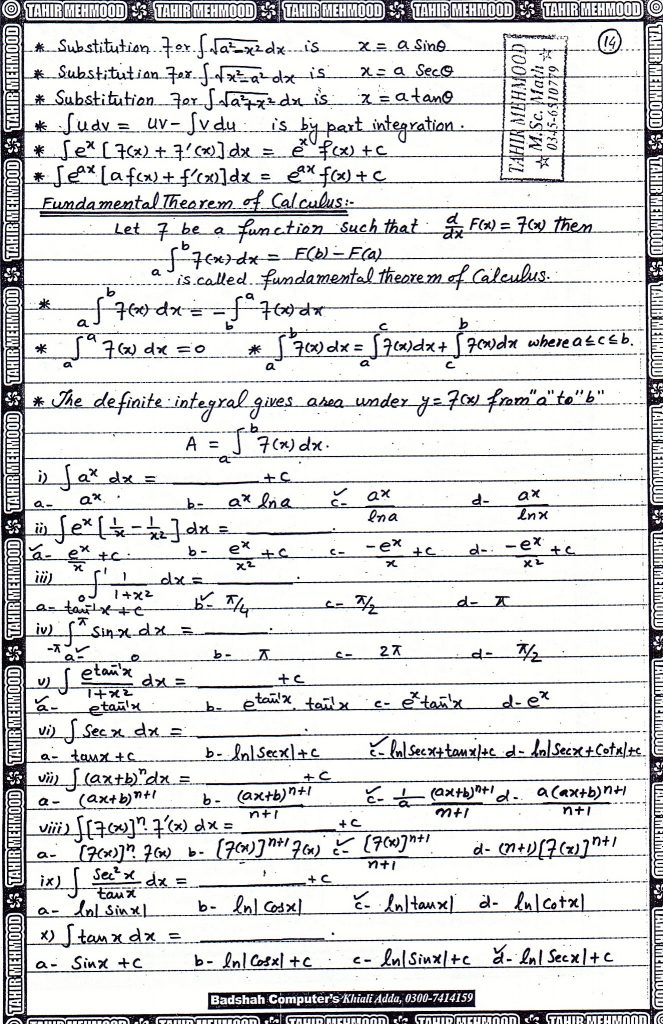 TAHIR MEHMOOD TAHIR MEHMOOD TAHIR MEHMOOD TAHIR MEHMOOD TAHIR MEHMOOD
14
* Substitution For ∫√a²-x² dx is x = a Sinθ
* Substitution For ∫√x²-a² dx is x = a Secθ
* Substitution For ∫√a²+x² dx is x = a tanθ
TAHIR MEHMOOD
M.Sc. Math
☆ 0345-6510779 ☆
* ∫udv = uv - ∫vdu is by part integration.
* ∫eˣ [f(x) + f'(x)] dx = eˣ f(x) + c
* ∫eᵃˣ [a f(x) + f'(x)] dx = eᵃˣ f(x) + c
Fundamental Theorem of Calculus:-
Let f be a function such that d/dx F(x) = f(x) then
ₐ∫ᵇ f(x) dx = F(b) - F(a)
is called fundamental theorem of Calculus.
* ₐ∫ᵇ f(x) dx = - b∫ᵃ f(x) dx
* ₐ∫ᵃ f(x) dx = 0 * ₐ∫ᵇ f(x) dx = ₐ∫ᶜ f(x) dx + c∫ᵇ f(x) dx where a ≤ c ≤ b.
* The definite integral gives area under y = f(x) from "a" to "b"
A = ₐ∫ᵇ f(x) dx.
i) ∫aˣ dx = ________ + c
a- aˣ b- aˣ lna ✓c- aˣ/lna d- aˣ/lnx
ii) ∫eˣ [1/x - 1/x²] dx = ________.
✓a- eˣ/x + c b- eˣ/x² + c c- -eˣ/x + c d- -eˣ/x² + c
iii) ₀∫¹ 1/1+x² dx = ________.
a- tan⁻¹x + c ✓b- π/4 c- π/2 d- π
iv) -π∫π Sinx dx = ________.
✓a- 0 b- π c- 2π d- π/2
v) ∫ e^tan⁻¹x/1+x² dx = ________ + c
✓a- e^tan⁻¹x b- e^tan⁻¹x. tan⁻¹x c- eˣ tan⁻¹x d- eˣ
vi) ∫ Sec x dx = ________.
a- tanx + c b- ln|Secx| + c ✓c- ln|Secx+tanx| + c d- ln|Secx+Cotx| + c
vii) ∫ (ax+b)ⁿ dx = ________ + c
a- (ax+b)ⁿ⁺¹ b- (ax+b)ⁿ⁺¹/n+1 ✓c- 1/a (ax+b)ⁿ⁺¹/n+1 d- a(ax+b)ⁿ⁺¹/n+1
viii) ∫[f(x)]ⁿ. f'(x) dx = ________ + c
a- [f(x)]ⁿ. f(x) b- [f(x)]ⁿ⁺¹ f(x) ✓c- [f(x)]ⁿ⁺¹/n+1 d- (n+1)[f(x)]ⁿ⁺¹
ix) ∫ Sec²x/tanx dx = ________ + c
a- ln|Sinx| b- ln|Cosx| ✓c- ln|tanx| d- ln|Cotx|
x) ∫ tanx dx = ________.
a- Sinx + c b- ln|Cosx| + c c- ln|Sinx| + c ✓d- ln|Secx| + c
Badshah Computer's Khiali Adda, 0300-7414159
TAHIR MEHMOOD TAHIR MEHMOOD TAHIR MEHMOOD TAHIR MEHMOOD TAHIR MEHMOOD